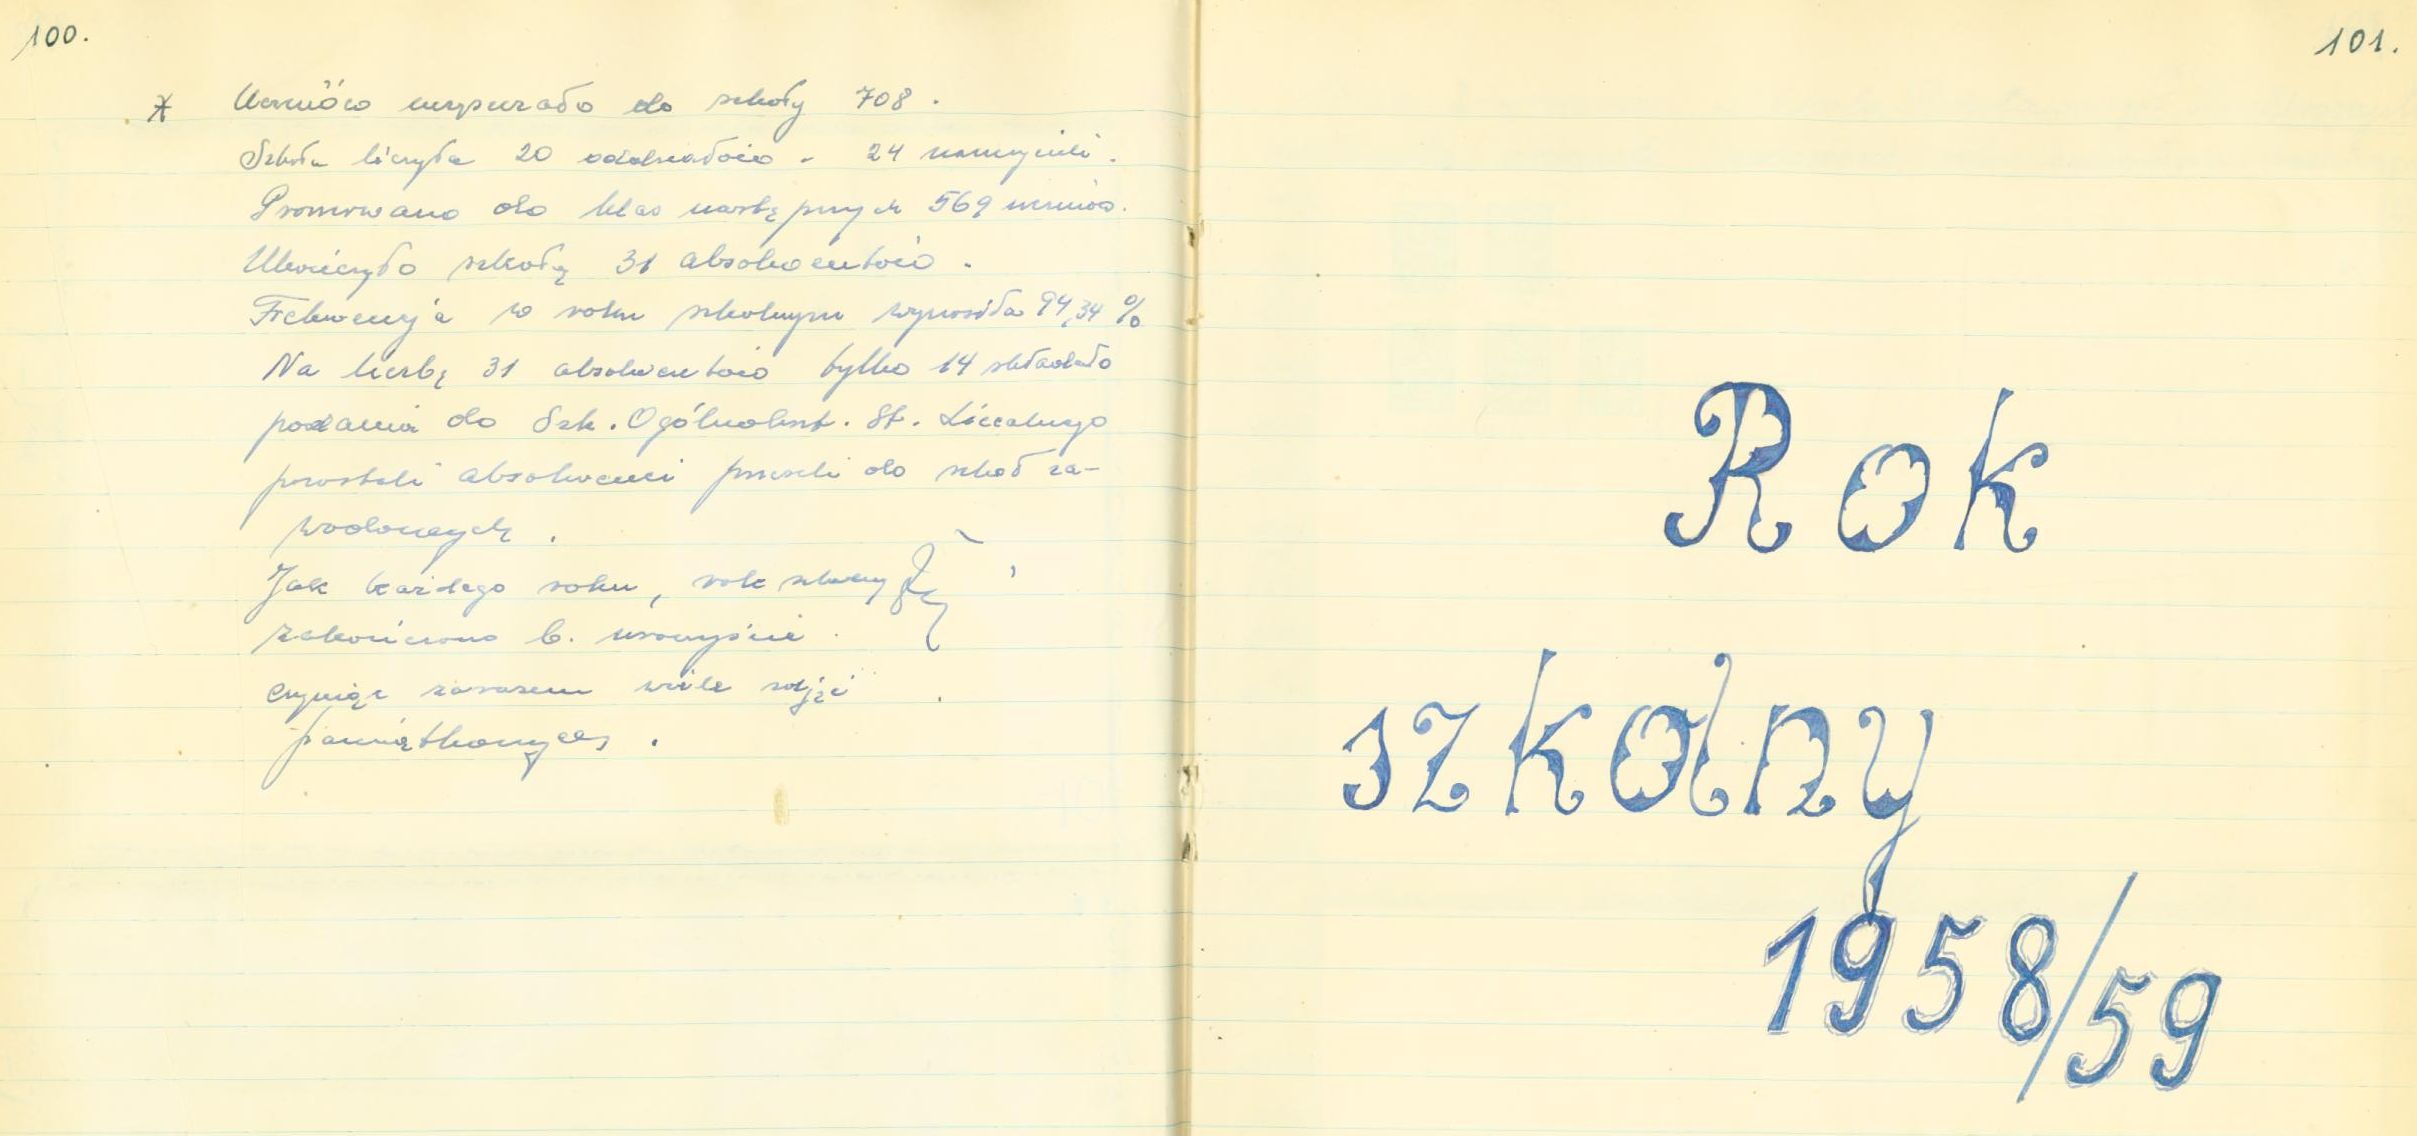 100.
Uczniów uczęszczało do szkoły 708.
Szkoła liczyła 20 oddziałów - 24 nauczycieli.
Promowano do klas następnych 569 uczniów.
Ukończyło szkołę 31 absolwentów.
Frekwencja w roku szkolnym wynosiła 94,34 %
Na liczbę 31 absolwentów tylko 14 składało
podania do Szk. Ogólnokszt. St. Licealnego
pozostali absolwenci przeszli do szkół za-
wodowych.
Jak każdego roku, rok szkolny
zakończono b. uroczyście
czyniąc zarazem wiele zdjęć
pamiątkowych.
101.
Rok
szkolny
1958/59